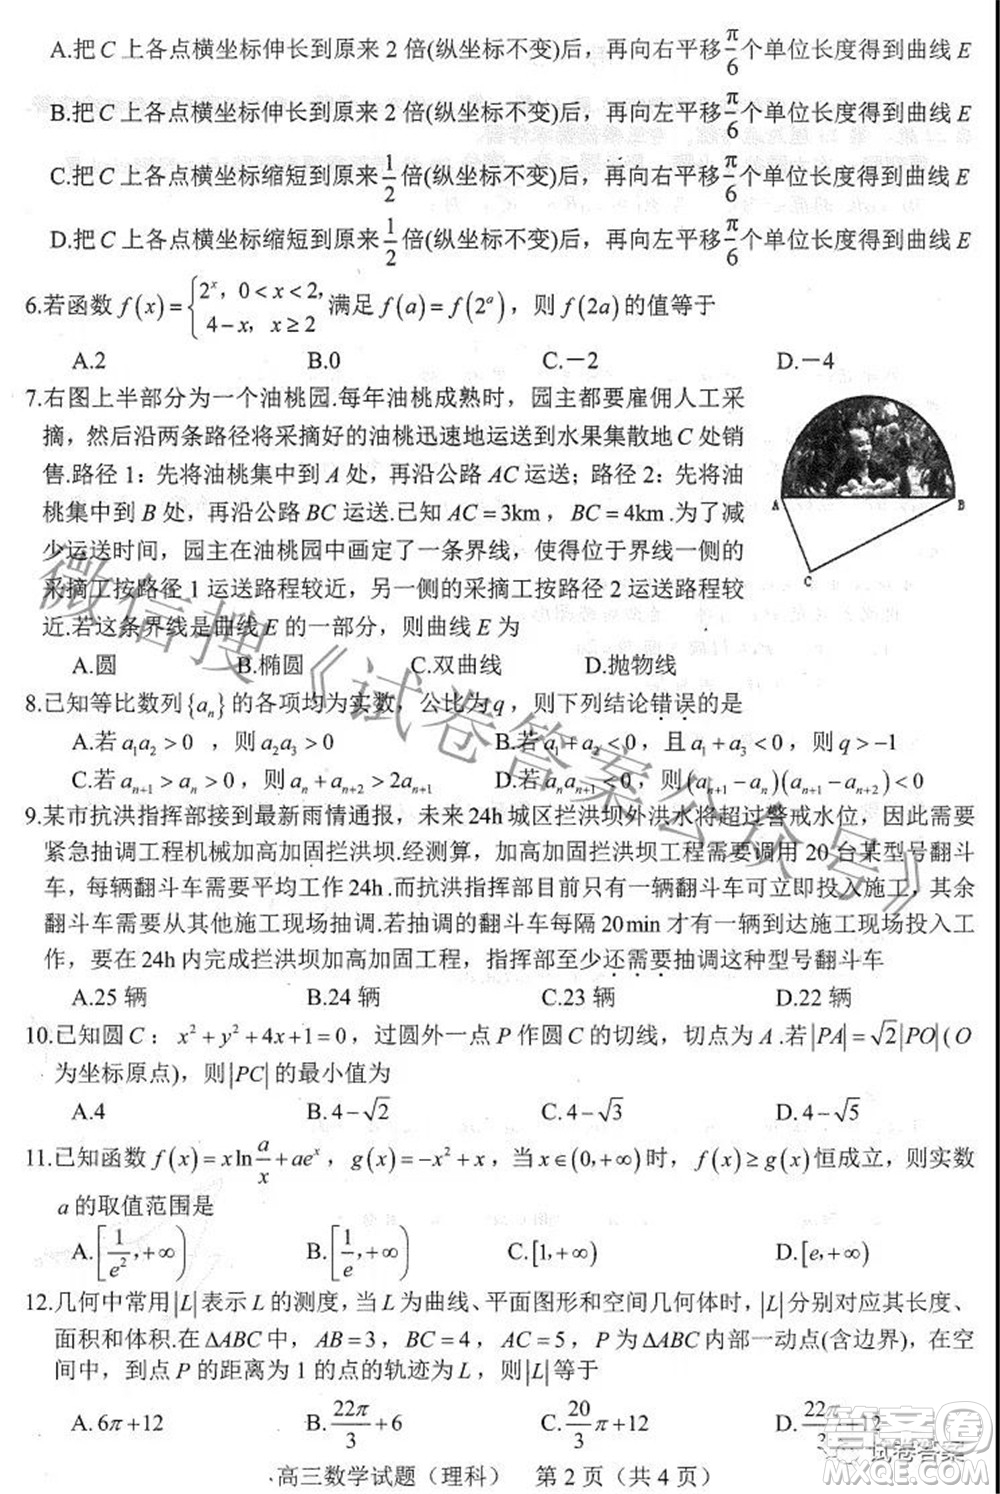 A.把 C 上各点横坐标伸长到原来 2 倍(纵坐标不变)后，再向右平移 π/6 个单位长度得到曲线 E
B.把 C 上各点横坐标伸长到原来 2 倍(纵坐标不变)后，再向左平移 π/6 个单位长度得到曲线 E
C.把 C 上各点横坐标缩短到原来 1/2 倍(纵坐标不变)后，再向右平移 π/6 个单位长度得到曲线 E
D.把 C 上各点横坐标缩短到原来 1/2 倍(纵坐标不变)后，再向左平移 π/6 个单位长度得到曲线 E
6.若函数 f(x)={2^x，0<x<2，4−x，x≥2 满足 f(a)=f(2^a)，则 f(2a) 的值等于
A.2 B.0 C.−2 D.−4
7.右图上半部分为一个油桃园.每年油桃成熟时，园主都要雇佣人工采
摘，然后沿两条路径将采摘好的油桃迅速地运送到水果集散地 C 处销
售.路径 1：先将油桃集中到 A 处，再沿公路 AC 运送；路径 2：先将油
桃集中到 B 处，再沿公路 BC 运送.已知 AC=3km，BC=4km.为了减
少运送时间，园主在油桃园中画定了一条界线，使得位于界线一侧的
采摘工按路径 1 运送路程较近，另一侧的采摘工按路径 2 运送路程较
近.若这条界线是曲线 E 的一部分，则曲线 E 为
A B
C
A.圆 B.椭圆 C.双曲线 D.抛物线
8.已知等比数列{a_n}的各项均为实数，公比为 q，则下列结论错误的是
A.若 a₁a₂>0 ，则 a₂a₃>0 B.若 a₁+a₂<0，且 a₁+a₃<0，则 q>−1
C.若 a_{n+1}>a_n>0，则 a_n+a_{n+2}>2a_{n+1} D.若 a_n a_{n+1}<0，则(a_{n+1}−a_n)(a_{n+1}−a_{n+2})<0
9.某市抗洪指挥部接到最新雨情通报，未来 24h 城区拦洪坝外洪水将超过警戒水位，因此需要
紧急抽调工程机械加高加固拦洪坝.经测算，加高加固拦洪坝工程需要调用 20 台某型号翻斗
车，每辆翻斗车需要平均工作 24h.而抗洪指挥部目前只有一辆翻斗车可立即投入施工，其余
翻斗车需要从其他施工现场抽调.若抽调的翻斗车每隔 20min 才有一辆到达施工现场投入工
作，要在 24h 内完成拦洪坝加高加固工程，指挥部至少还需要抽调这种型号翻斗车
A.25 辆 B.24 辆 C.23 辆 D.22 辆
10.已知圆 C：x²+y²+4x+1=0，过圆外一点 P 作圆 C 的切线，切点为 A.若|PA|=√2|PO|(O
为坐标原点)，则|PC|的最小值为
A.4 B.4−√2 C.4−√3 D.4−√5
11.已知函数 f(x)=xln a/x+ae^x，g(x)=−x²+x，当 x∈(0,+∞)时，f(x)≥g(x)恒成立，则实数
a 的取值范围是
A.[1/e²,+∞) B.[1/e,+∞) C.[1,+∞) D.[e,+∞)
12.几何中常用|L|表示 L 的测度，当 L 为曲线、平面图形和空间几何体时，|L|分别对应其长度、
面积和体积.在 ΔABC 中，AB=3，BC=4，AC=5，P 为 ΔABC 内部一动点(含边界)，在空
间中，到点 P 的距离为 1 的点的轨迹为 L，则|L|等于
A.6π+12 B.22π/3+6 C.20/3π+12 D.22π/3+12
高三数学试题（理科） 第 2 页（共 4 页）
微信搜《试卷答案公众号》
答案圈
试卷答案